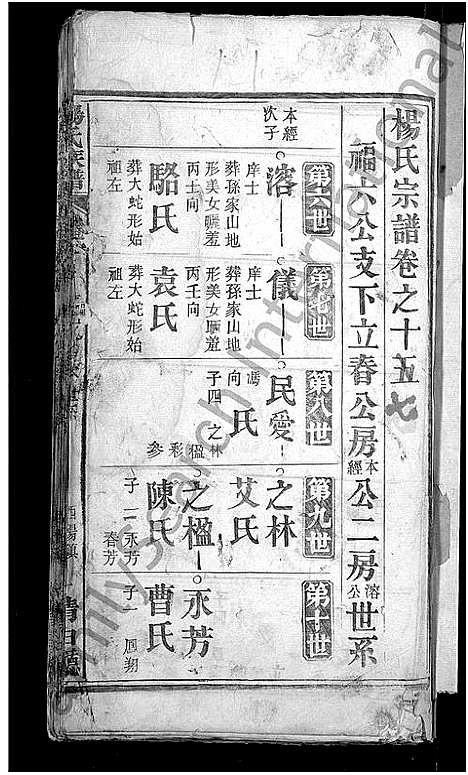 楊氏宗譜卷之十五 七
福六公支下立春公房本經公二房溶公世系
第六世
本經次子
溶
庠士
葬孫家山地
形美女曬羞
丙壬向
駱氏
葬大蛇形始
祖左
第七世
儀
庠士
葬孫家山地
形美女曬羞
丙壬向
袁氏
葬大蛇形始
祖左
第八世
民愛
馮氏
向
子四 之林
楹 彩 參
第九世
之林
艾氏
之楹
陳氏
子二 永芳
春芳
第十世
永芳
曹氏
子一
楊氏族譜
清白
FamilySearch International